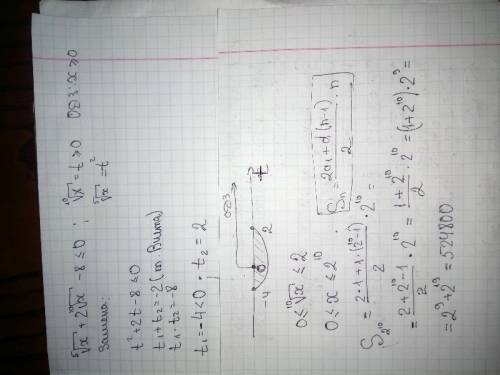 ⁵√x + 2 ¹⁰√x - 8 ≤ 0 ; ¹⁰√x = t ≥ 0 ОДЗ: x ≥ 0
Замена: ⁵√x = t²
t² + 2t - 8 ≤ 0
t₁ + t₂ = -2 (т. Виета)
t₁ · t₂ = -8
t₁ = -4 < 0 · t₂ = 2
ОДЗ
-4 0 2 t
0 ≤ ¹⁰√x ≤ 2
0 ≤ x ≤ 2¹⁰ · Sₙ = (2a₁ + d(n-1))/2 · n
S₂¹⁰ = (2·1 + 1·(2¹⁰-1))/2 · 2¹⁰ =
= (2 + 2¹⁰ - 1)/2 · 2¹⁰ = (1 + 2¹⁰)/2 · 2¹⁰ = (1 + 2¹⁰) · 2⁹ =
= 2⁹ + 2¹⁹ = 524800